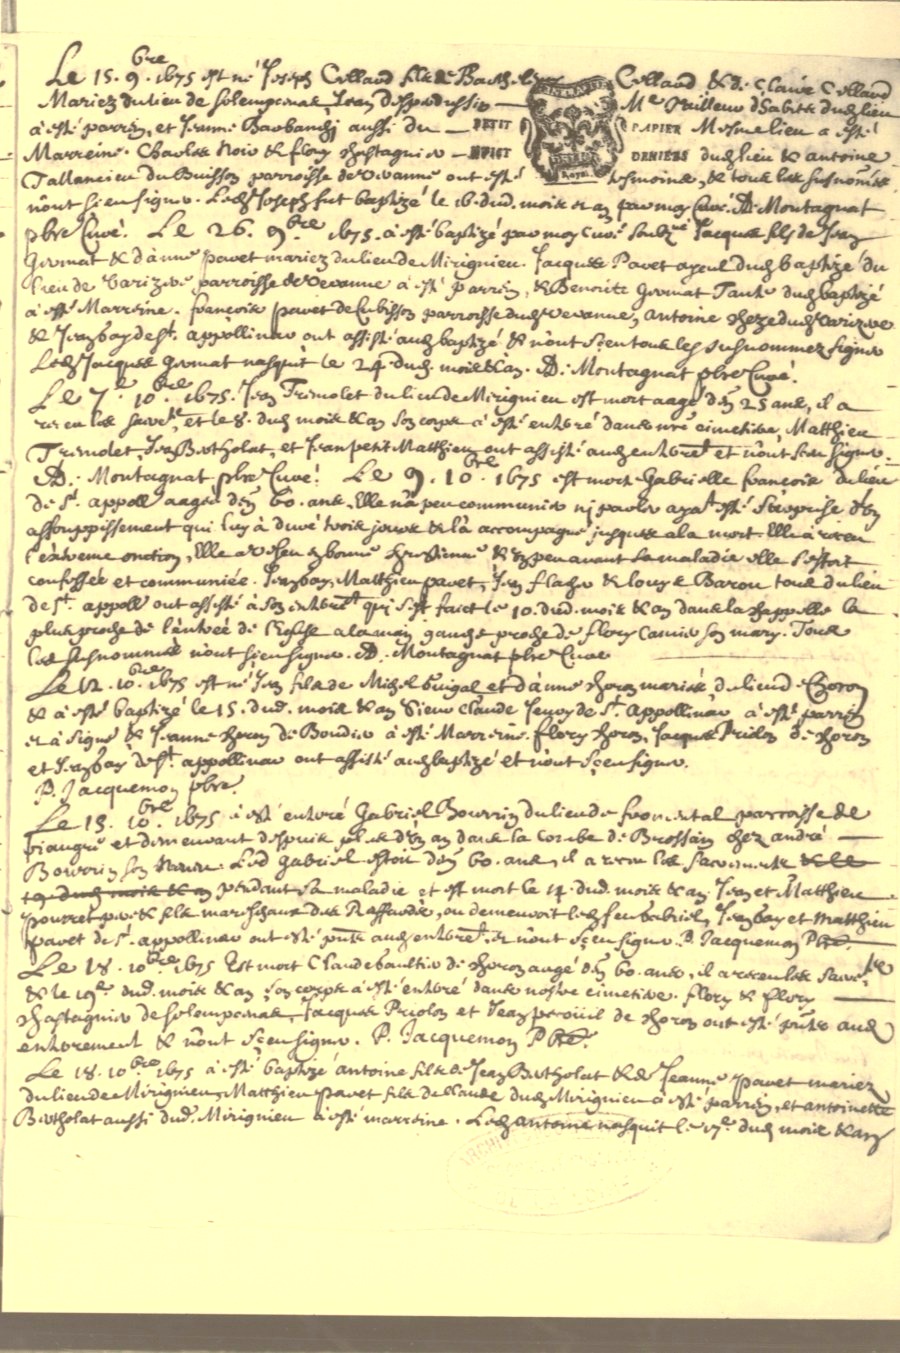 Le 15. 9.bre 1675 est né Joseph Collaud fils de Barth.. Collaud & de Claire Collaud
Mariez du lieu de Solempcenas Jean Me dud lieu
à esté parrin, et Jeanne aussi du PETIT PAPIER Mesme lieu a esté
Marreine. Charles Noir & flory Chastagnier HUICT DENIERS dud lieu & antoine
Tallancieu du Buisson parroisse de Vevanne ont esté tesmoins, & tous les susnoms
n'ont sceu signer. Led Joseph fut baptizé le 16. dud. mois & an par moy Curé. D. Montagnat
pbre Curé. Le 26. 9.bre 1675. à esté baptizé par moy Curé soubzné Jacques fils de Jean
Gromat & d'anne Pavet mariez du lieu de Mirignieu. Jacques Pavet ayeul dud baptizé du
lieu de Varizire parroisse de Vevanne à esté parrin, & Benoitte Gromat Tante dud baptizé
à esté Marreine. françois pavet de Cubisson parroisse dud Vevanne, Antoine dud Varizire
& Jean bay de St. appollinar ont assisté aud baptizé & n'ont sceu tous les susnommez signer
Led Jacques Gromat nasquit le 24 dud. mois & an. D. Montagnat pbre Curé.
Le 7.e 10.bre 1675. Jean Trimolet du lieu de Mirignieu est mort aagé d'en 25 ans, il a
receu les sacrts, et le 8. dud mois & an son corps à esté enterré dans nre cimetiere, Matthieu
Trimolet, Jean Bertholat, et Jean petit Matthieu ont assisté aud enterret et n'ont sceu signer.
D. Montagnat pbre Curé. Le 9. 10.bre 1675 est morte Gabrielle françois du lieu
de St. appoll aagée d'en 60. ans, Elle n'a peu communier ni parler ayat esté surprise d'en
assoupissement qui luy à duré trois jours & l'à accompagné jusques a la mort. Elle à receu
l'extreme onction, Elle a vescu en bonne Chrestienne & en peu avant sa maladie elle s'estoit
confessée et communiée. Jean bay, Matthieu pavet, Jean & louys Baron tous du lieu
de St. appoll ont assisté à son enterret qui s'est faict le 10. dud. mois & an dans la chappelle la
plus proche de l'entrée de l'Eglise a la main gauche proche de flory Camier son mary. Tous
les susnommés n'ont sceu signer. D. Montagnat pbre Curé
Le 12. 10.bre 1675 est né Jean fils de Michel Guigal et d'anne Choron mariés du lieu de Choron
& à esté baptizé le 15. dud. mois & an Sieur Claude de St. Appollinar à esté parrin
et à signé & Jeanne Choron de à esté Marreine. flory Choron, Jacques Priolon de Choron
et Jean bay de St. appollinar ont assisté aud baptizé et n'ont sceu signer.
P. Jacquemon pbre.
Le 15. 10.bre 1675 à esté enterré Gabriel Bourrin du lieu de fromental parroisse de
riaugre et demeurant despuis plus d'en an dans la Combe de Brossain chez andré
Bourrin son Led Gabriel estoit d'en 60. ans, il a receu les sacrements & le
19. dud mois & an pendant sa maladie et est mort le 14. dud. mois & an. Jean et Matthieu
pourret pere & fils mareschaux des Raffardes, ou demeuroit led feu Gabriel, Jean bay et Matthieu
pavet de St. appollinar ont esté prnts aud enterret. et n'ont sceu signer. P. Jacquemon Pbre.
Le 18. 10.bre 1675 Est mort Claude baultier de Choron aagé d'en 60. ans, il a receu les sacre.
& le 19.e dud. mois & an son corps à esté enterré dans nostre cimetiere. flory & flory
Chastagnier de Solempcenas, Jacques Priolon et Jean de Choron ont esté prnts aud
enterrement & n'ont sceu signer. P. Jacquemon Pbre.
Le 18. 10.bre 1675 à esté baptizé antoine fils de Jean Bertholat & de Jeanne pavet mariez
du lieu de Mirignieu, Matthieu pavet fils de Claude dud Mirignieu à esté parrin, et antoinette
Bertholat aussi dud. Mirignieu à esté marreine. Led antoine nasquit le 17.e dud mois & an